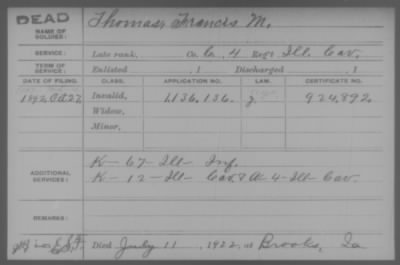 DEAD
NAME OF SOLDIER:
Thomas, Francis M.
SERVICE:
Late rank, Co. C, 4 Reg't Ill. Cav.
TERM OF SERVICE:
Enlisted , 1 Discharged , 1
DATE OF FILING. CLASS. APPLICATION NO. LAW. CERTIFICATE NO.
1892 Oct. 27 Invalid, 1,136,136. 924,892.
Widow,
Minor,
ADDITIONAL SERVICES:
K - 67 - Ill - Inf.
K - 12 - Ill - Cav. & A - 4 - Ill - Cav.
REMARKS:
Died July 11, 1922, at Brooks, Ia